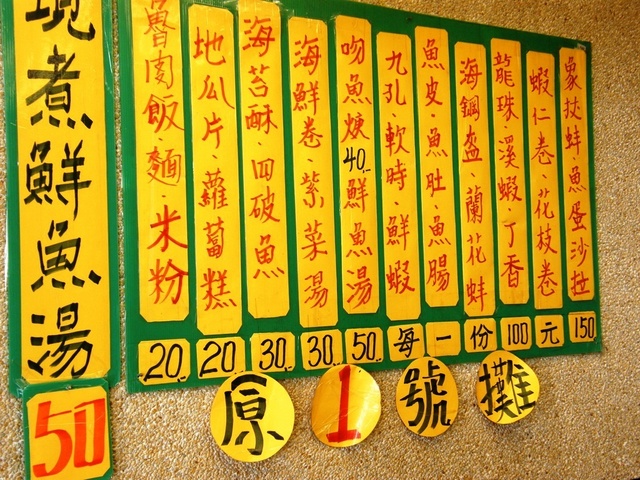 現煮鮮魚湯
50
魯肉飯麵、米粉
地瓜片、蘿蔔糕
海苔酥、四破魚
海鮮卷、紫菜湯
吻魚焿40、鮮魚湯
九孔、軟時、鮮蝦
魚皮、魚肚、魚腸
海鋼盔、蘭花蚌
龍珠、溪蝦、丁香
蝦仁卷、花枝卷
象拔蚌魚蛋沙拉
20 20 30 30 50 每一份 100 元 150
原1號攤